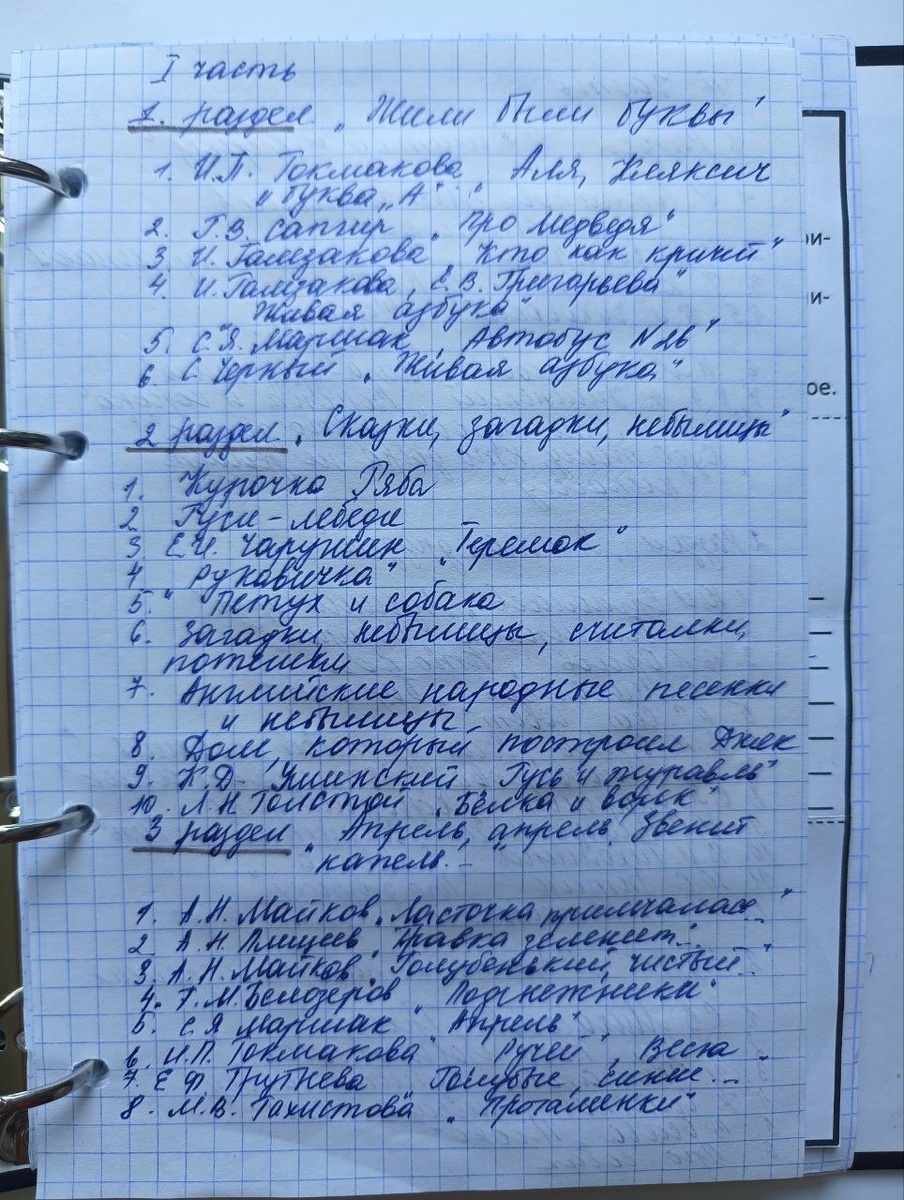 I часть
1. раздел „Жили были буквы"
1. И.П. Токмакова Аля, Кляксич
и буква „А"
2. Г.В. Сапгир „Про медведя"
3. И. Гамазкова „Кто как кричит"
4. И. Гамазкова, Е.В. Григорьева"
Живая азбука"
5. С.Я. Маршак „Автобус №26"
6. С Черный „Живая азбука"
2 раздел „Сказки, загадки, небылицы"
1. Курочка Ряба
2 Гуси-лебеди
3 Е.И. Чарушин „Теремок"
4 „Рукавичка"
5. Петух и собака
6. Загадки, небылицы, считалки,
потешки
7. Английские народные песенки
и небылицы
8. Дом, который построил Джек
9. К.Д. Ушинский „Гусь и журавль"
10. Л.Н. Толстой „Белка и волк"
3 раздел „Апрель, апрель. Звенит
капель..."
1. А.Н. Майков „Ласточка примчалась..."
2 А.Н. Плещеев „Травка зеленеет..."
3. А.Н. Майков „Голубенький, чистый..."
4. Т.М. Белозеров „Подснежники"
5. С.Я Маршак „Апрель"
6. И.П. Токмакова „Ручей", Весна
7. Е Ф Трутнева „Голубые, синие...
8. М.В. „Проталинки"
ри-
и-
ое.